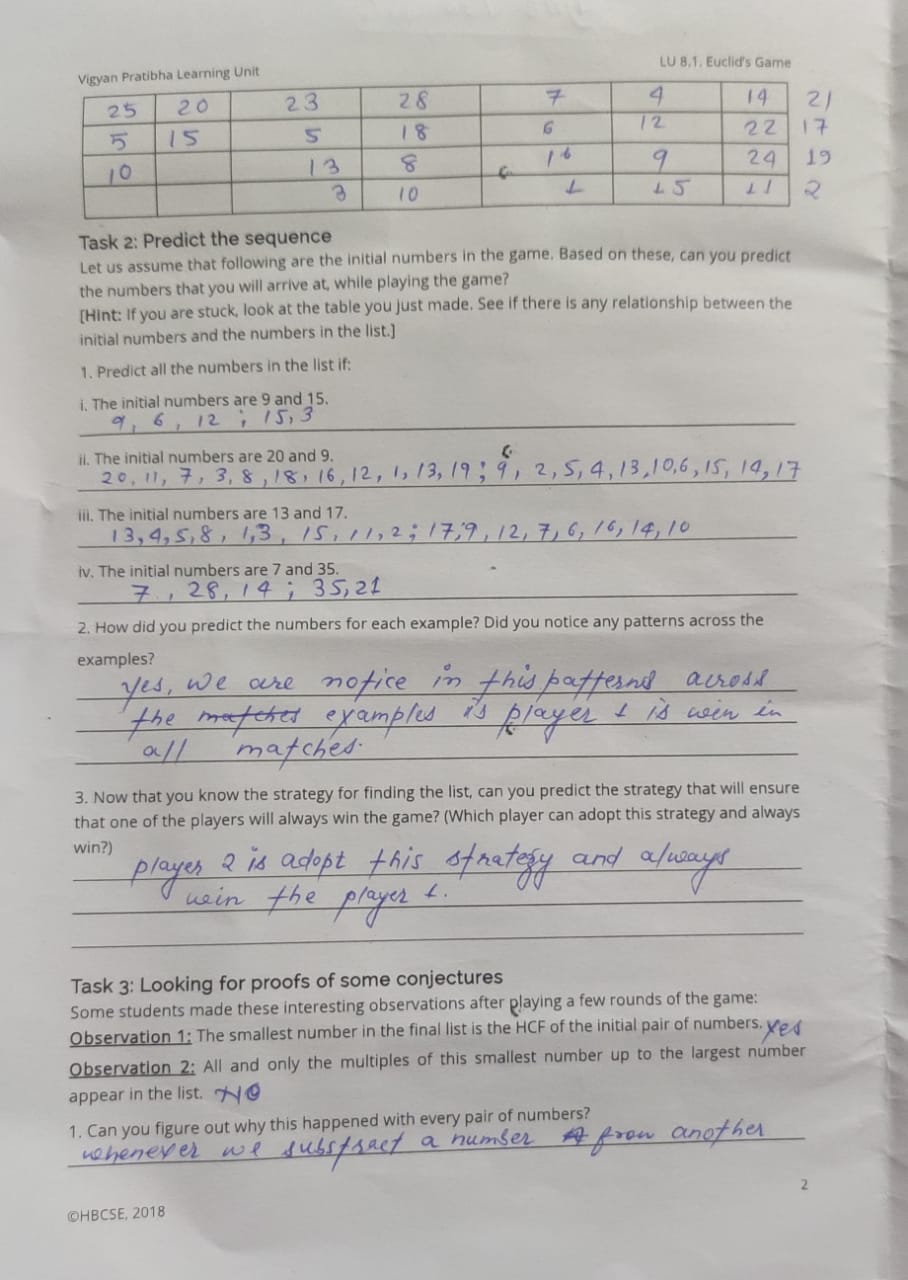 Vigyan Pratibha Learning Unit LU 8.1. Euclid's Game
25 20 23 28 7 4 14 21
5 15 5 18 6 12 22 17
10 13 8 16 9 24 19
3 10 1 15 11 2
Task 2: Predict the sequence
Let us assume that following are the initial numbers in the game. Based on these, can you predict
the numbers that you will arrive at, while playing the game?
[Hint: If you are stuck, look at the table you just made. See if there is any relationship between the
initial numbers and the numbers in the list.]
1. Predict all the numbers in the list if:
i. The initial numbers are 9 and 15.
9, 6, 12 ; 15, 3
ii. The initial numbers are 20 and 9.
20, 11, 7, 3, 8, 18, 16, 12, 1, 13, 19 ; 9, 2, 5, 4, 13, 10, 6, 15, 14, 17
iii. The initial numbers are 13 and 17.
13, 4, 5, 8, 1, 3, 15, 11, 2 ; 17, 9, 12, 7, 6, 16, 14, 10
iv. The initial numbers are 7 and 35.
7, 28, 14 ; 35, 21
2. How did you predict the numbers for each example? Did you notice any patterns across the
examples?
yes, we are notice in this patterns across
the matches examples is player 1 is win in
all matches.
3. Now that you know the strategy for finding the list, can you predict the strategy that will ensure
that one of the players will always win the game? (Which player can adopt this strategy and always
win?)
player 2 is adopt this strategy and always
win the player 1.
Task 3: Looking for proofs of some conjectures
Some students made these interesting observations after playing a few rounds of the game:
Observation 1: The smallest number in the final list is the HCF of the initial pair of numbers. Yes
Observation 2: All and only the multiples of this smallest number up to the largest number
appear in the list. NO
1. Can you figure out why this happened with every pair of numbers?
whenever we substract a number from another
2
©HBCSE, 2018